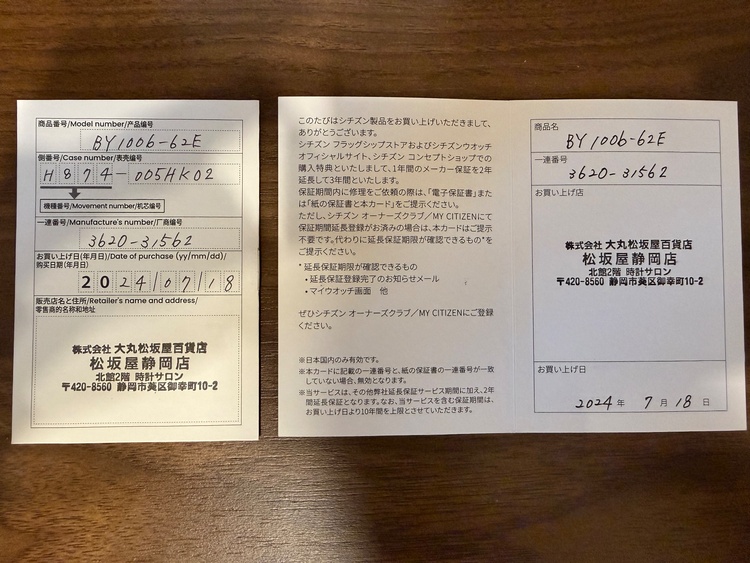 商品番号/Model number/产品编号
BY1006-62E
側番号/Case number/表壳编号
H874-005HK02
機種番号/Movement number/机芯编号
一連番号/Manufacture's number/厂商编号
3620-31562
お買い上げ日(年月日)/Date of purchase (yy/mm/dd)/
购买日期(年月日)
2024/07/18
販売店名と住所/Retailer's name and address/
零售商的名称和地址
株式会社 大丸松坂屋百貨店
松坂屋静岡店
北館2階 時計サロン
〒420-8560 静岡市葵区御幸町10-2
このたびはシチズン製品をお買い上げいただきまして、
ありがとうございます。
シチズン フラッグシップストアおよびシチズンウオッチ
オフィシャルサイト、シチズン コンセプトショップでの
購入特典といたしまして、1年間のメーカー保証を2年
延長して3年間といたします。
保証期間内に修理をご依頼の際は、「電子保証書」また
は「紙の保証書と本カード」をご提示ください。
ただし、シチズン オーナーズクラブ/MY CITIZENにて
保証期間延長登録がお済みの場合は、本カードはご提示
不要です。代わりに延長保証期限が確認できるもの*を
ご提示ください。
* 延長保証期限が確認できるもの
• 延長保証登録完了のお知らせメール
• マイウオッチ画面 他
ぜひシチズン オーナーズクラブ/MY CITIZENにご登録
ください。
※日本国内のみ有効です。
※本カードに記載の一連番号と、紙の保証書の一連番号が一致
していない場合、無効となります。
※当サービスは、その他弊社延長保証サービス期間に加え、2年
間延長保証となります。なお、当サービスを含む保証期間は、
お買い上げ日より10年間を上限とさせていただきます。
商品名
BY1006-62E
一連番号
3620-31562
お買い上げ店
株式会社 大丸松坂屋百貨店
松坂屋静岡店
北館2階 時計サロン
〒420-8560 静岡市葵区御幸町10-2
お買い上げ日
2024年 7月 18日